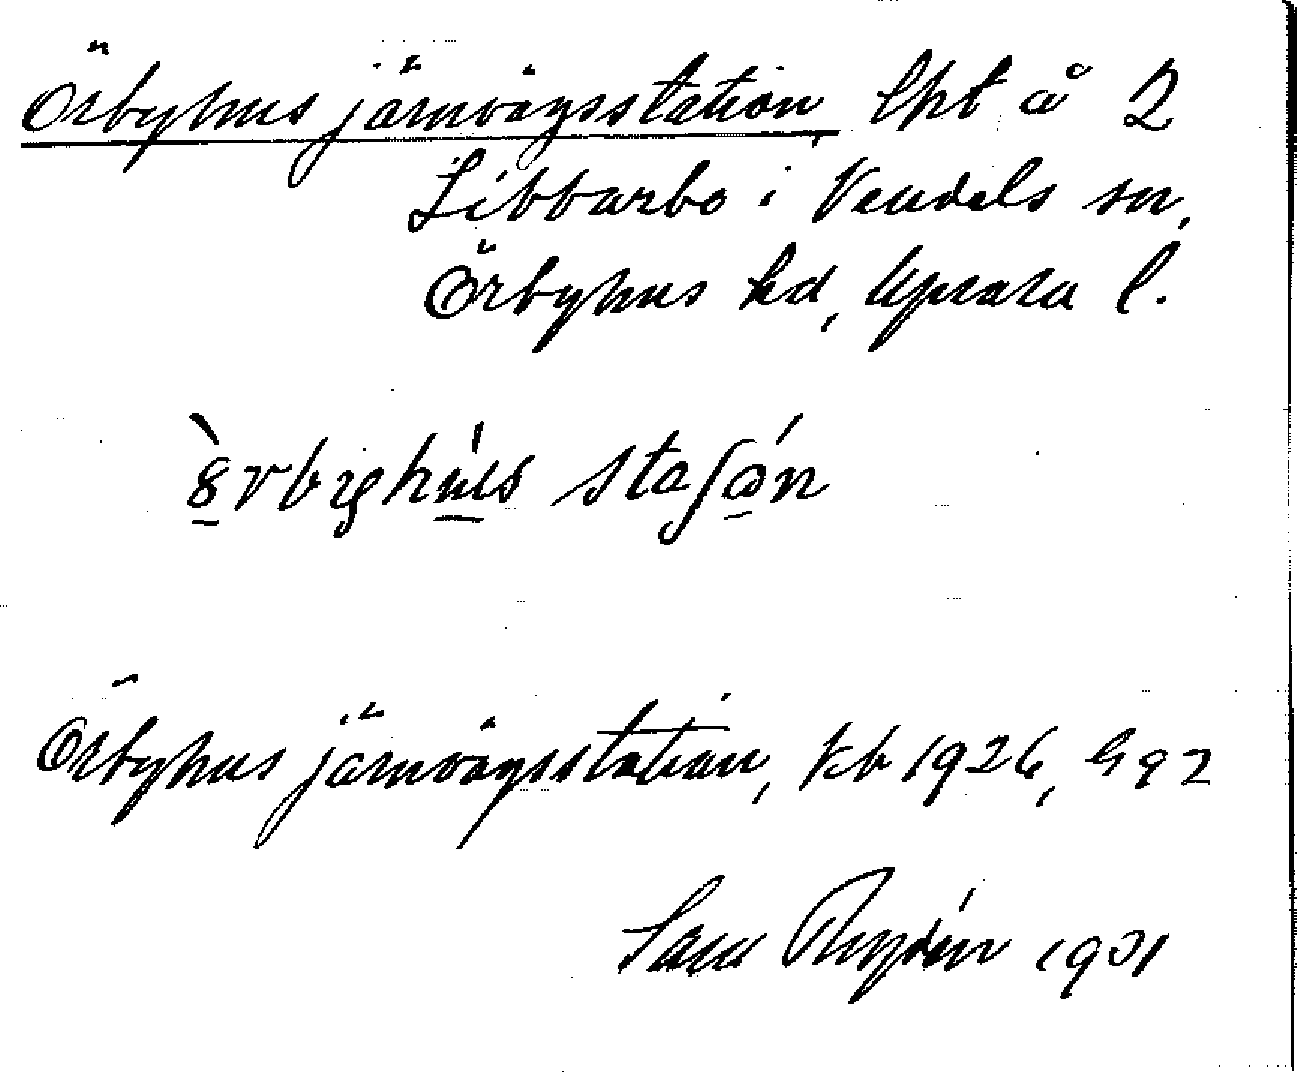 Örbyhus järnvägsstation, lht å 2
Libbarbo i Vendels sn,
Örbyhus hd, Upsala l.
stаʃən
Örbyhus järnvägsstation, kb 1926, Gg 2
Sam Rydén 1931